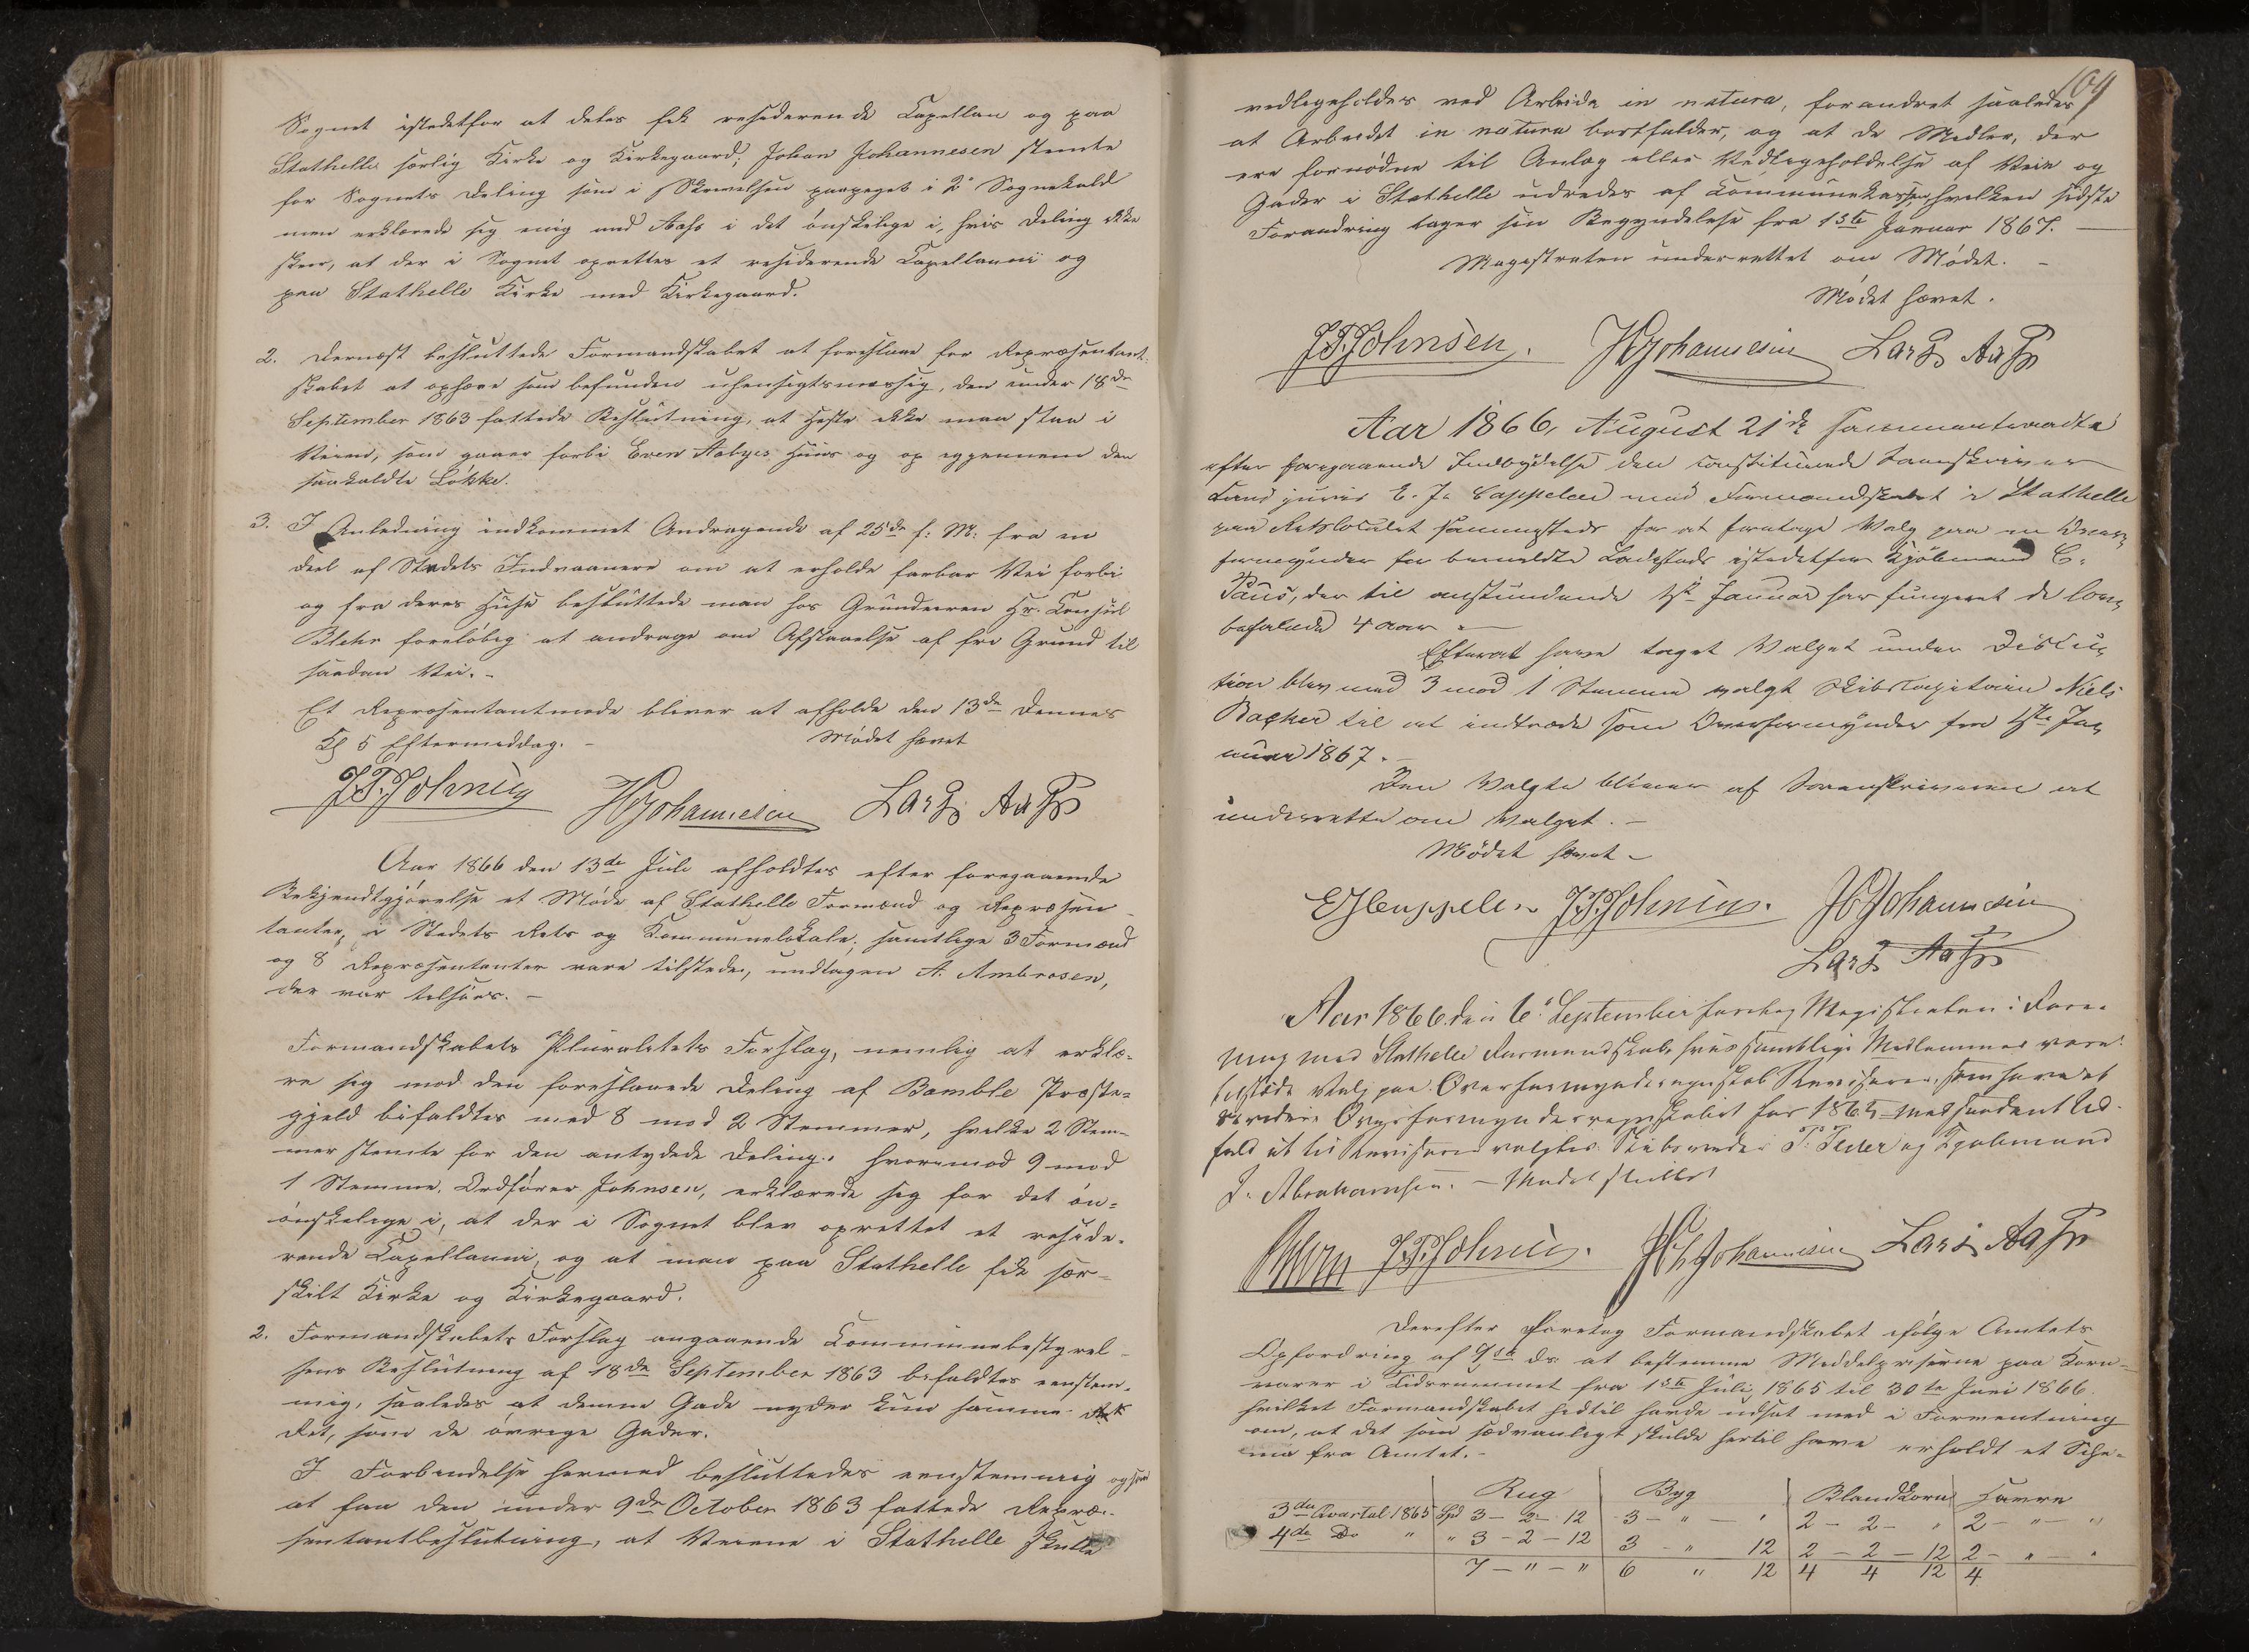 Sognet istedetfor at deles fik residerende Capellan og paa
Stathelle særlig Kirke og Kirkegaard; Johan Johannesen stemte
for Sognets Deling som i Skrivelsen paapeget i 2 Sognekald
men erklærede sig enig med Aass i det ønskelige i, hvis Deling ikke
skeer, at der i Sognet oprettes et residerende Capellanni og
paa Stathelle Kirke med Kirkegaard.
2. Dernæst besluttede Formandskabet at foreslaae for Repræsentant-
skabet at ophæve som befunden uhensigtsmæssig, den under 18de
September 1863 fattede Beslutning, at Heste ikke maa staa i
Veien, som gaaer forbi Even Aabyes Huus og op igjennem den
saakaldte Løkke.
3. I Anledning indkommet Andragende af 25de f: M: fra en
Deel af Stedets Indvaanere om at erholde farbar Vei forbi
og fra deres Huse besluttede man hos Grundeieren Hr. Consul
Blehr foreløbig at andrage om Afstaaelse af fri Grund til
saadan Vei. -
Et Repræsentantmøde bliver at afholde den 13de Dennes
Kl 5 Eftermiddag. - Mødet hævet
J. P. Johnsen HJohannesen Lars Aass
Aar 1866 den 13de Juli afholdtes efter foregaaende
Bekjendtgjørelse et Møde af Stathelle Formænd og Repræsen-
tanter, i Stedets Rets og Kommunelokale; samtlige 3 Formænd
og 8 Repræsentanter vare tilstede, undtagen A. Ambrosen,
der var tilsøes. -
Formandskabets Pluralitets Forslag, nemlig at erklæ-
re sig mod den foreslaaede Deling af Bamble Præste-
gjeld bifaldtes med 8 mod 2 Stemmer, hvilke 2 Stem-
mer stemte for den antydede Deling. hvorimod 9 mod
1 Stemme, Ordfører Johnsen, erklærede sig for det øn-
ønskelige i, at der i Sognet blev oprettet et reside-
rende Capellanni, og at man paa Stathelle fik sær-
skilt Kirke og Kirkegaard.
2. Formandskabets Forslag angaaende Communebestyrel-
sens Beslutning af 18de September 1863 bifaldtes eenstem-
mig, saaledes at denne Gade nyder kun samme
Ret, som de øvrige Gader.
I Forbindelse hermed besluttedes eenstemmig ogsaa
at faa den under 9de October 1863 fattede Repræ-
sentantbeslutning, at Veiene i Stathelle skulle
164
vedligeholdes ved Arbeide in natura, forandret saaledes
at Arbeidet in natura bortfalder, og at de Midler, der
ere fornødne til Anlæg eller Vedligeholdelse af Veie og
Gader i Stathelle udredes af Communekassen, hvilken sidste
Forandring tager sin Begyndelse fra 1ste Januar 1867. -
Magistraten underrettet om Mødet. -
Mødet hævet.
J. P. Johnsen. HJohannesen Lars Aass
Aar 1866, August 21de sammentraadte
efter foregaaende Indbydelse den constituerede Sorenskriver
Cand juris E. J. Cappelen med Formandskabet i Stathelle
paa Retslocalet sammesteds for at foretage Valg paa en Over-
formynder for bemeldte Ladested istedetfor Kjøbmand C.
Paus, der til anstundende 1ste Januar har fungeret de lov-
befalede 4 Aar. -
Efterat have taget Valget under Discu-
tion blev med 3 mod 1 Stemme valgt Skibscapitain Niels
Backer til at indtræde som Overformynder fra 1ste Ja-
nuar 1867. -
Den Valgte bliver af Sorenskriveren at
underrette om Valget. -
Mødet hævet -
EJCappelen J. P. Johnsen. HJohannesen
Lars Aass
Aar 1866 den 6 September foretog Magistraten i Fore-
ning med Stathelle Formandskab, hvis samtlige Medlemmer vare
tilstede Valg paa Overformynderregnskab Revisorer, som have at
revidere Overformynderregnskabet for 1865 med saadant Ud-
fald at til Revisorer valgtes Skibsreder P. Iller og Kjøbmand
J. Abrahamsen. - Mødet sluttet
J. P. Johnsen. HJohannesen Lars Aass
Derefter foretog Formandskabet ifølge Amtets
Opfordring af 9de ds. at bestemme Middelpriserne paa Korn-
varer i Tidsrummet fra 1ste Juli 1865 til 30te Juni 1866.
hvilket Formandskabet hidtil havde udsat med i Formentning
om, at det som sædvanligt skulde hertil have erholdt et Sche-
ma fra Amtet. -
Rug Byg Blandkorn Havre
3die Qvartal 1865 Spd 3 - 2 - 12 3 - " - " 2 - 2 - " 2 - " - "
4de Do " " 3 - 2 - 12 3 - " 12 2 - 2 - 12 2 - " - "
7 - " - " 6 " 12 4 4 12 4